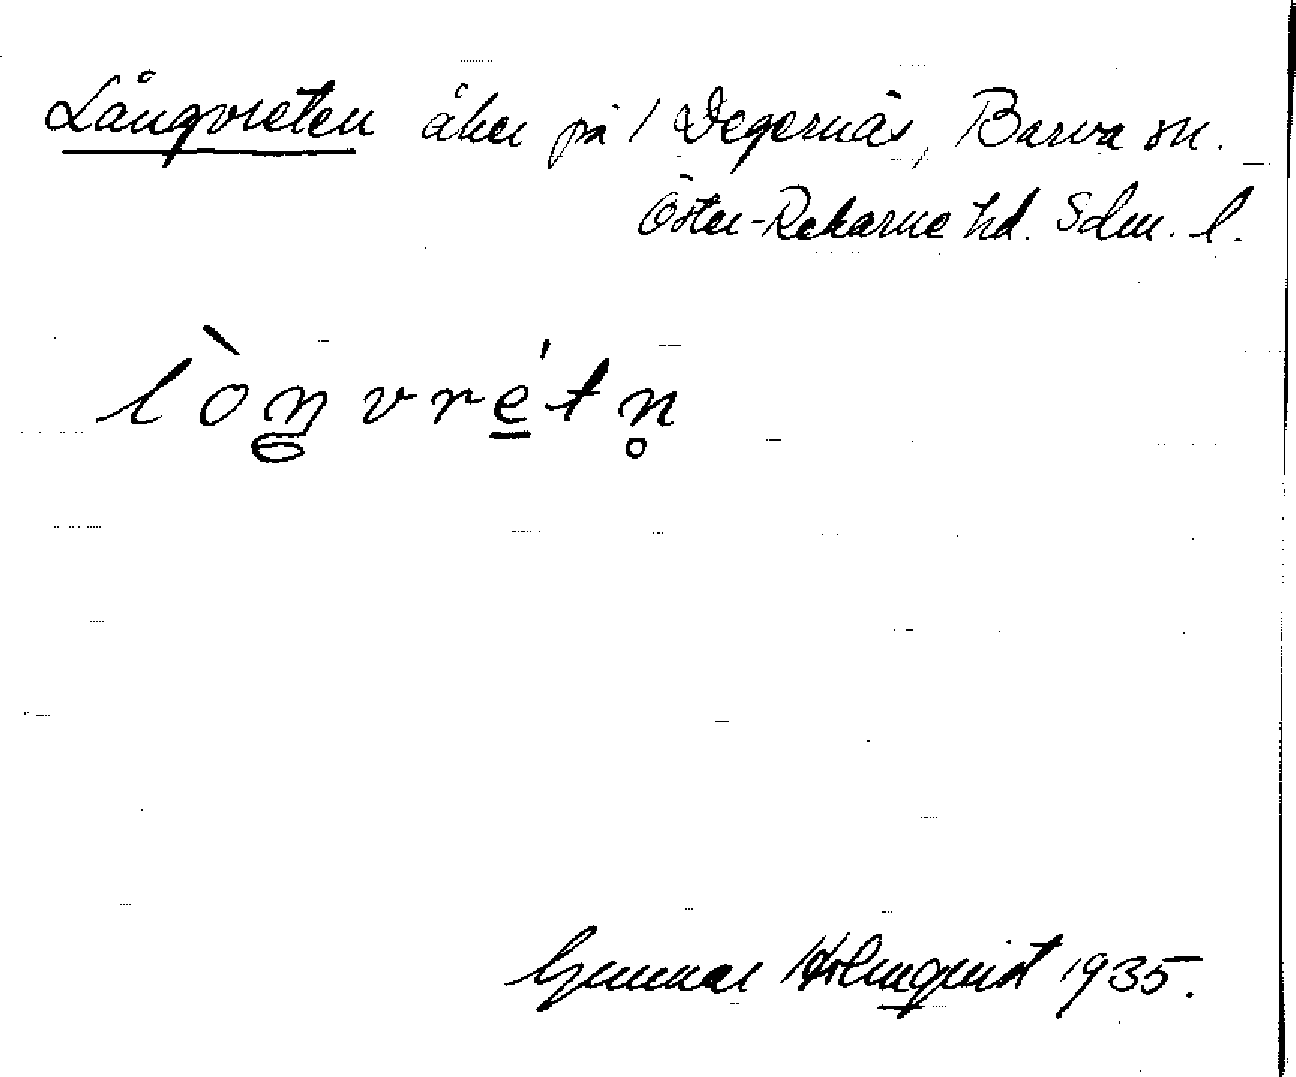 Långvreten åker på / Degernäs, Barva sn.
Öster-Rekarne hd. Sdm. l.
lòŋvrétn̥
Gunnar Holmquist 1935.